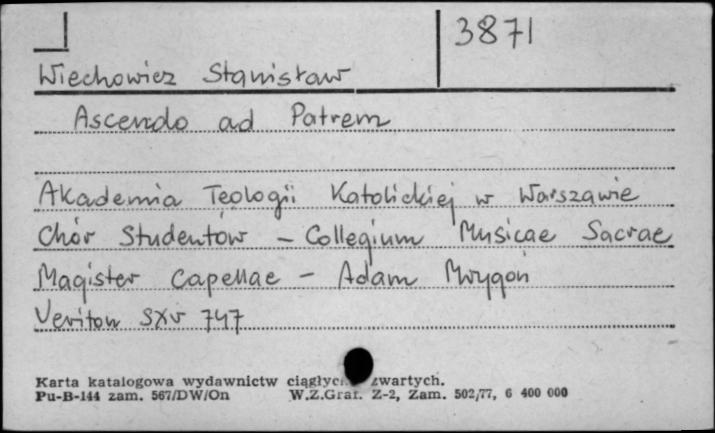 3871
Wiechowicz Stanisław
Ascendo ad Patrem
Akademia Teologii Katolickiej w Warszawie
Chór Studentów - Collegium Musicae Sacrae
Magister Capellae - Adam Mrygoń
Veriton SXV 747
Karta katalogowa wydawnictw zwartych.
Pu-B-144 zam. 567/DW/On W.Z.Graf. Z-2, Zam. 502/77, 6 400 000